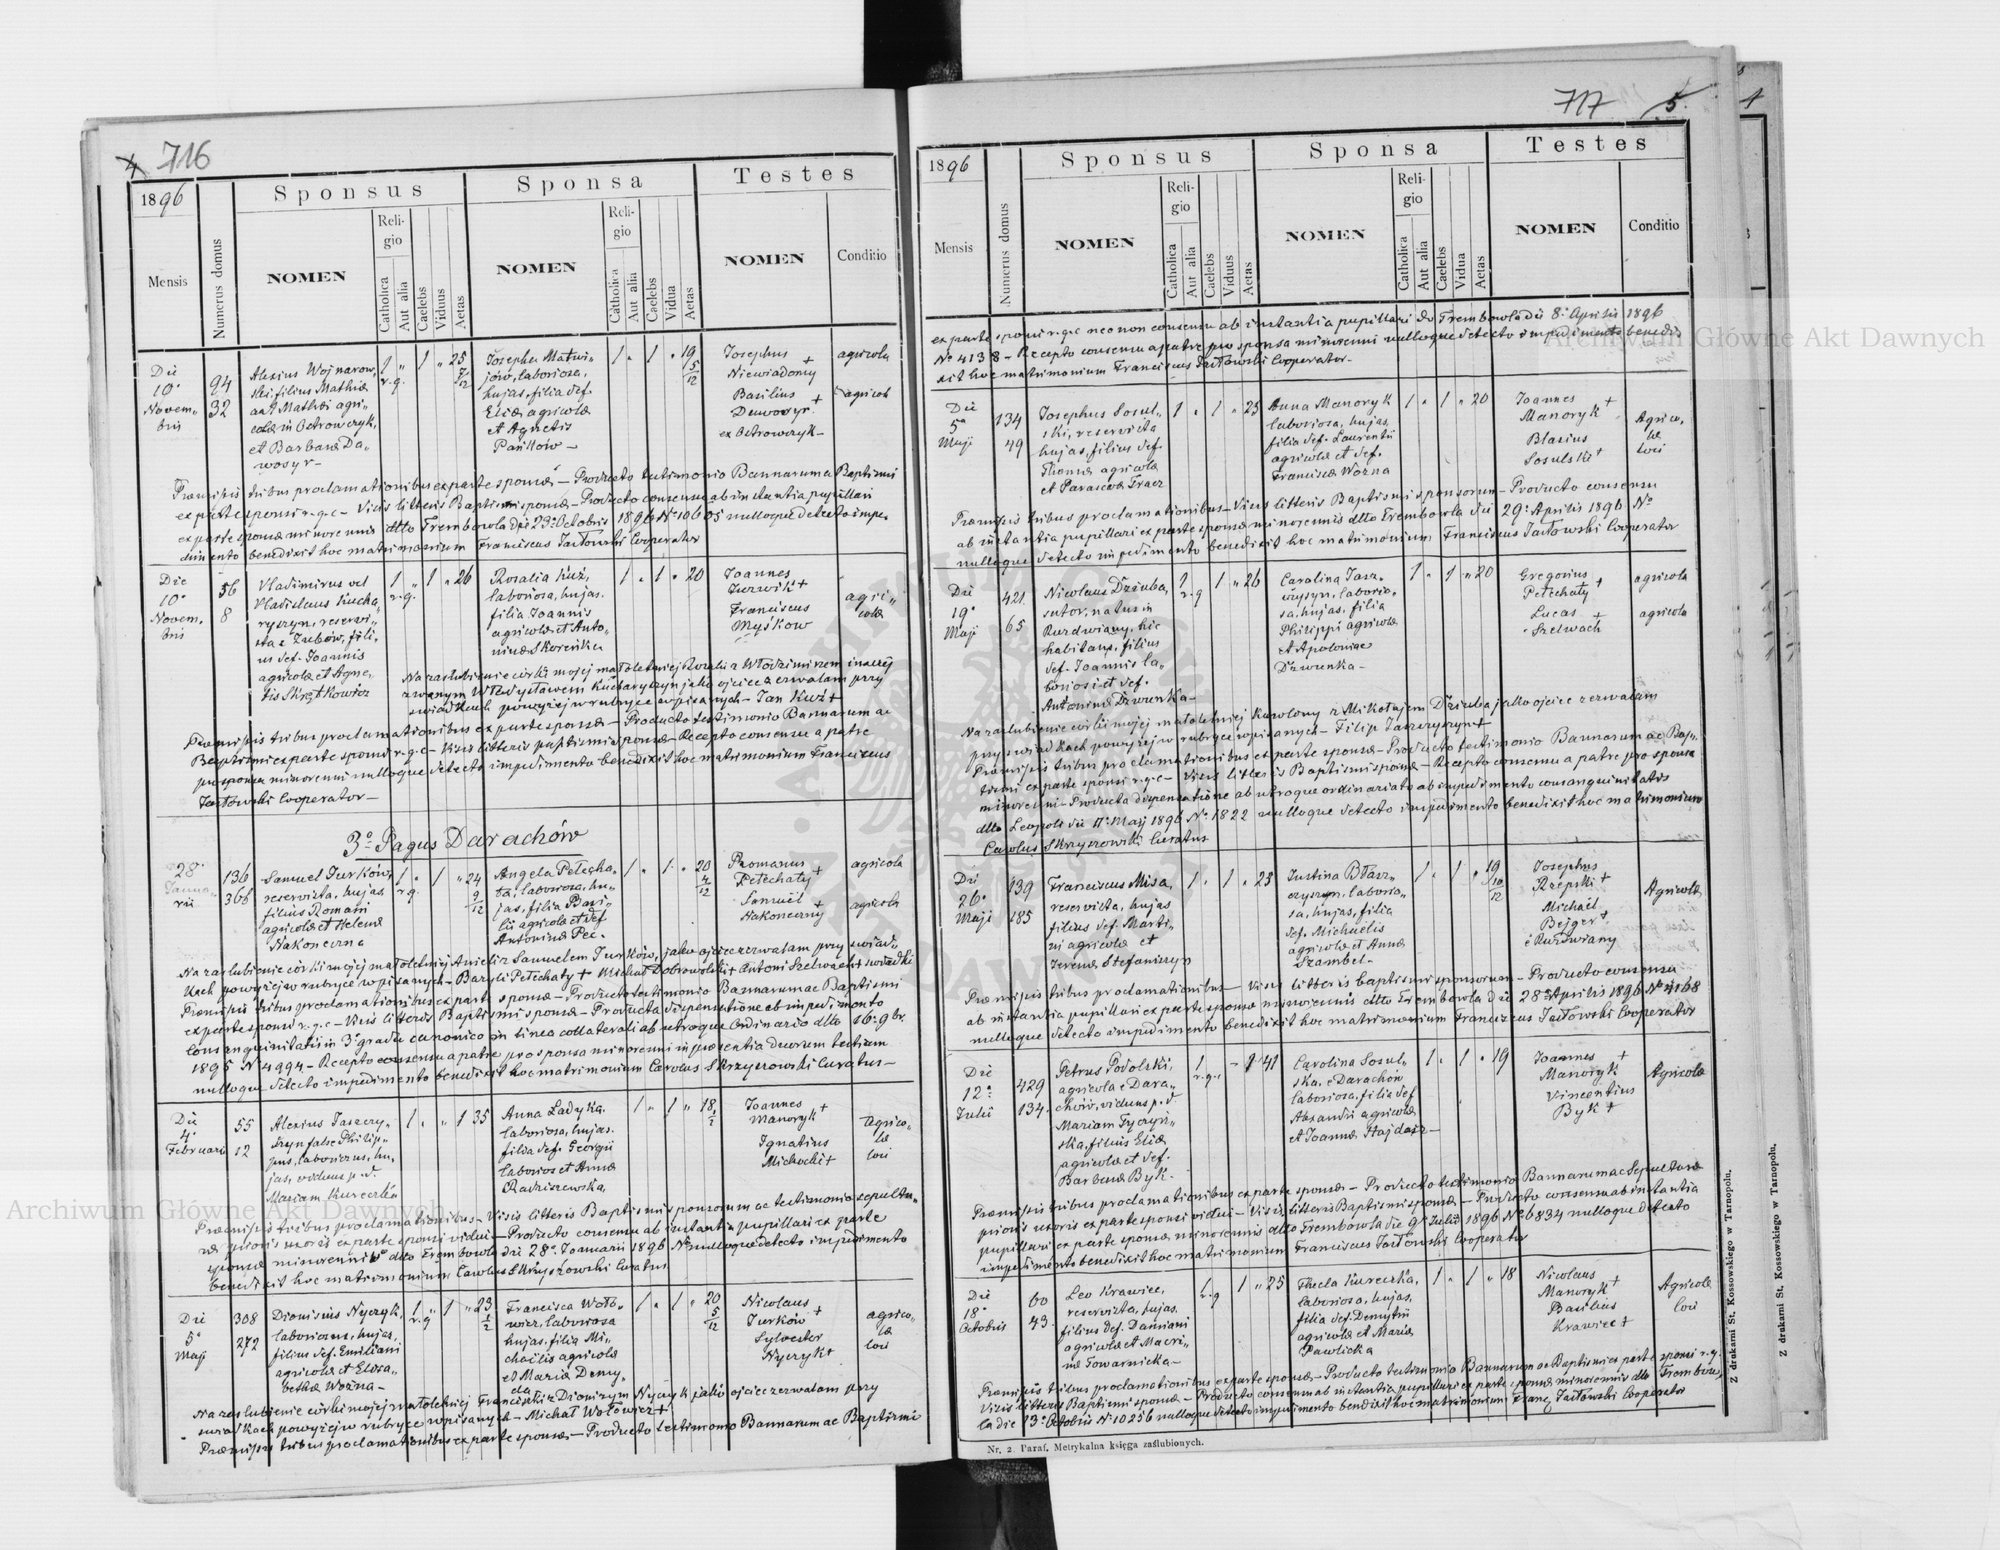 4 716
1896
Sponsus
Sponsa
Testes
Mensis
Numerus domus
NOMEN
Religio
Catholica
Aut alia
Caelebs
Viduus
Aetas
NOMEN
Religio
Catholica
Aut alia
Caelebs
Vidua
Aetas
NOMEN
Conditio
Die
10ª
Novem-
bris
94
32
Alexius Wojnarow,
ski, filius Mathiæ
aut Mathei agri-
colæ in Ostrowczyk,
et Barbaræ Da-
wosyr-
1 r.g. " 1 " 25 7/12
Josepha Matwi-
jów, laboriosa,
hujas, filia def.
Eliæ agricolæ
et Agnetis
Pańków -
1 " 1 " 19 5/12
Josephus +
Niewiadomy
Basilius +
Dawosyr
ex Ostrowczyk-
agricola
agricola
Præmissis tribus proclamationibus ex parte sponsæ - Producto testimonio Bannarum ac Baptismi
ex parte sponsi r.g.c - Visis litteris Baptismi sponsæ - Producto consensu ab instantia pupillari
ex parte sponsæ minorennis dtto Trembowla die 23ª Octobris 1896 Nº 10605 nulloque detecto impe-
dimento benedixit hoc matrimonium Franciscus Jastowski Cooperator
Die
10ª
Novem,
bris
56
8
Vladimirus vel
Vladislaus Kucha,
ryszyn, reservi-
sta e Zubów, fili-
us def. Joannis
agricolæ et Agne-
tis Skrętkowicz
1 r.g. " 1 " 26
Rosalia Kuź,
laboriosa, hujas.
filia Joannis
agricolæ et Anto-
ninæ Skoreńka
1 " 1 " 20
Joannes
Jurwik +
Franciscus
Myśkow
agri,
colæ
Na zaślubienie córki mojej małoletniej Rozalii z Włodzimirzem inaczej
zwanym Władysławem Kucharyszyn jako ojciec zezwalam przy
świadkach powyżej w rubryce wpisanych - Jan Kuź +
Præmissis tribus proclamationibus ex parte sponsæ - Producto testimonio Bannarum ac
Baptismi ex parte sponsi r.g.c - Visis litteris baptismi sponsæ - Recepto consensu a patre
pro sponsa minorenni nulloque detecto impedimento benedixit hoc matrimonium Franciscus
Jastowski Cooperator -
3º Pagus Darachów
28ª
Janua-
rii
136
366
Samuel Jurków,
reservista, hujas,
filius Romani
agricolæ et Helenæ
Nakoneczna
1 r.g. " 1 " 24 9/12
Angela Petecha-
ta, laboriosa, hu-
jas, filia Basi-
lii agricolæ et def.
Antoninæ Pec.
1 " 1 " 20 7/12
Romanus +
Petechaty
Samuel +
Nakoneczny
agricola
agricola
Na zaślubienie córki mojej małoletniej Anieli z Samuelem Jurków, jako ojciec zezwalam przy świad-
kach powyżej w rubryce wpisanych - Bazyli Petechaty + Michał Dobrowolski + Antoni Szelwach + świadki
Præmissis tribus proclamationibus ex parte sponsæ - Producto testimonio Bannarum ac Baptismi
ex parte sponsi r.g.c - Visis litteris Baptismi sponsæ - Producta dispensatione ab impedimento
consanguinitatis in 3º gradu canonico in linea collaterali ab utroque Ordinario dtto 16. 9br.
1895 Nº 4994 - Recepto consensu a patre pro sponsa minorenni in præsentia duorum testium
nulloque detecto impedimento benedixit hoc matrimonium Carolus Skrzyszowski Curatus -
Die
4ª
Februarii
55
12
Alexius Taszczy-
szyn false Philip-
pus, laboriosus, hu,
jas, viduus p. d.
Mariam Kureczka
1 " " 1 35
Anna Ładyka
laboriosa, hujas.
filia def. Georgii
laboriosi et Annæ
Radziszewska,
1 " 1 " 18 1/2
Joannes +
Manoryk
Ignatius
Michocki +
agrico-
læ
loci
Præmissis tribus proclamationibus - Visis litteris Baptismi sponsorum ac testimonio sepultu-
ræ prioris uxoris ex parte sponsi vidui - Producto consensu ab instantia pupillari ex parte
sponsæ minorennis dtto Trembowla die 28ª Januarii 1896 Nº nulloque detecto impedimento
benedixit hoc matrimonium Carolus Skrzyszowski Curatus
Die
5ª
Maji
308
272
Dionisius Nyczyk,
laboriosus, hujas,
filius def. Emiliani
agricolæ et Elisa-
bethæ Woźna -
1 r.g " 1 " 23 1/2
Francisca Woło-
wiec, laboriosa
hujas, filia Mi-
chaëlis agricolæ
et Mariæ Demy-
da
1 " 1 " 20 5/12
Nicolaus +
Jurków
Sylvester
Nyczyk +
agrico-
læ
loci
Na zaślubienie córki mojej małoletniej Franciszki z Dionizym Nyczyk jako ojciec zezwalam przy
świadkach powyżej w rubryce wpisanych - Michał Wołowiec +
Præmissis tribus proclamationibus ex parte sponsæ - Producto testimonio Bannarum ac Baptismi
717 5.
1896
Sponsus
Sponsa
Testes
Mensis
Numerus domus
NOMEN
Religio
Catholica
Aut alia
Caelebs
Viduus
Aetas
NOMEN
Religio
Catholica
Aut alia
Caelebs
Vidua
Aetas
NOMEN
Conditio
ex parte sponsi r.g.c nec non consensu ab instantia pupillari de Trembowla die 8ª Aprilis 1896
Nº 4138 - Recepto consensu a patre pro sponsa minorenni nulloque detecto impedimento benedi-
xit hoc matrimonium Franciscus Jastowski Cooperator -
Die
5ª
Maji
134
49
Josephus Sosul-
ski, reservista
hujas, filius def.
Thomæ agricolæ
et Parascevæ Tracz
1 " 1 " 25
Anna Manoryk
laboriosa, hujas,
filia def. Laurentii
agricolæ et def.
Franciscæ Woźna
1 " 1 " 20
Joannes +
Manoryk
Blasius
Sosulski +
Agrico,
læ
loci
Præmissis tribus proclamationibus - Visis litteris Baptismi sponsorum - Producto consensu
ab instantia pupillari ex parte sponsæ minorennis dtto Trembowla die 29ª Aprilis 1896 Nº
nulloque detecto impedimento benedixit hoc matrimonium Franciscus Jastowski Cooperator
Die
19ª
Maji
421
65
Nicolaus Dziuba,
sutor, natus in
Ruzdwiany, hic
habitans, filius
def. Joannis la-
boriosi et def.
Antoninæ Dzwonka -
1 r.g 1 " 26
Carolina Tasz-
czyszyn, laborio-
sa, hujas, filia
Philippi agricolæ
et Apoloniæ
Dzwonka -
1 " 1 " 20
Gregorius +
Petechaty
Lucas +
Szelwach
agricola
agricola
Na zaślubienie córki mojej małoletniej Karoliny z Mikołajem Dziuba jako ojciec zezwalam
przy świadkach powyżej w rubryce wpisanych - Filip Taszczyszyn +
Præmissis tribus proclamationibus ex parte sponsæ - Producto testimonio Bannarum ac Bap-
tismi ex parte sponsi r.g.c - Visis litteris Baptismi sponsæ - Recepto consensu a patre pro sponsa
minorenni - Producta dispensatione ab utroque ordinariato ab impedimento consanguinitatis
dtto Leopoli die 17ª Maji 1896 Nº 1822 nulloque detecto impedimento benedixit hoc matrimonium
Carolus Skrzyszowski Curatus
Die
26ª
Maji
139
185
Franciscus Misa,
reservista, hujas
filius def. Marti-
ni agricolæ et
Irenæ Stefaniszyn
1 " 1 " 23
Justina Błasz-
czyszyn, laborio-
sa, hujas, filia
def. Michaëlis
agricolæ et Annæ
Szambel -
1 " 1 " 19 10/12
Josephus
Rzepski +
Michaël
Bejger +
e Ruzdwiany
Agricolæ
Præmissis tribus proclamationibus - Visis litteris baptismi sponsorum - Producto consensu
ab instantia pupillari ex parte sponsæ minorennis dtto Trembowla die 28ª Aprilis 1896 Nº 4168
nulloque detecto impedimento benedixit hoc matrimonium Franciscus Jastowski Cooperator
Die
12ª
Julii
429
134.
Petrus Podolski,
agricola e Dara-
chów, viduus p. d
Mariam Tyczyń-
ska, filius Eliæ
agricolæ et def.
Barbaræ Byk -
1 r.g.c - 1 41
Carolina Sosul-
ska, e Darachów
laboriosa, filia def
Alexandri agricolæ
et Joannæ Hajdasz -
1 " 1 " 19
Joannes +
Manoryk
Vincentius
Byk +
Agricolæ
Præmissis tribus proclamationibus ex parte sponsæ - Producto testimonio Bannarum ac Sepulturæ
prioris uxoris ex parte sponsi vidui - Visis litteris Baptismi sponsæ - Producto consensu ab instantia
pupillari ex parte sponsæ minorennis dtto Trembowla die 9ª Julii 1896 Nº 6834 nulloque detecto
impedimento benedixit hoc matrimonium Franciscus Jastowski Cooperator
Die
18ª
Octobris
60
43
Leo Krawiec,
reservista, hujas.
filius def. Damiani
agricolæ et Macri-
næ Towarnicka -
1 r.g 1 " 25
Thecla Kureczka,
laboriosa, hujas,
filia def. Demytrii
agricolæ et Mariæ
Pawlicka
1 " 1 " 18
Nicolaus +
Manoryk
Basilius
Krawiec +
Agricolæ
loci
Præmissis tribus proclamationibus ex parte sponsæ - Producto testimonio Bannarum ac Baptismi ex parte sponsi r.g.
Visis litteris Baptismi sponsæ - Producto consensu ab instantia pupillari ex parte sponsæ minorennis dtto Trembow,
la die 13ª Octobris Nº 10256 nulloque detecto impedimento benedixit hoc matrimonium Franc Jastowski Cooperator
Nr. 2. Paraf. Metrykalna księga zaślubionych.
Z drukarni St. Kossowskiego w Tarnopolu.
Z drukarni St. Kossowskiego w Tarnopolu.
Archiwum Główne Akt Dawnych
Archiwum Główne Akt Dawnych